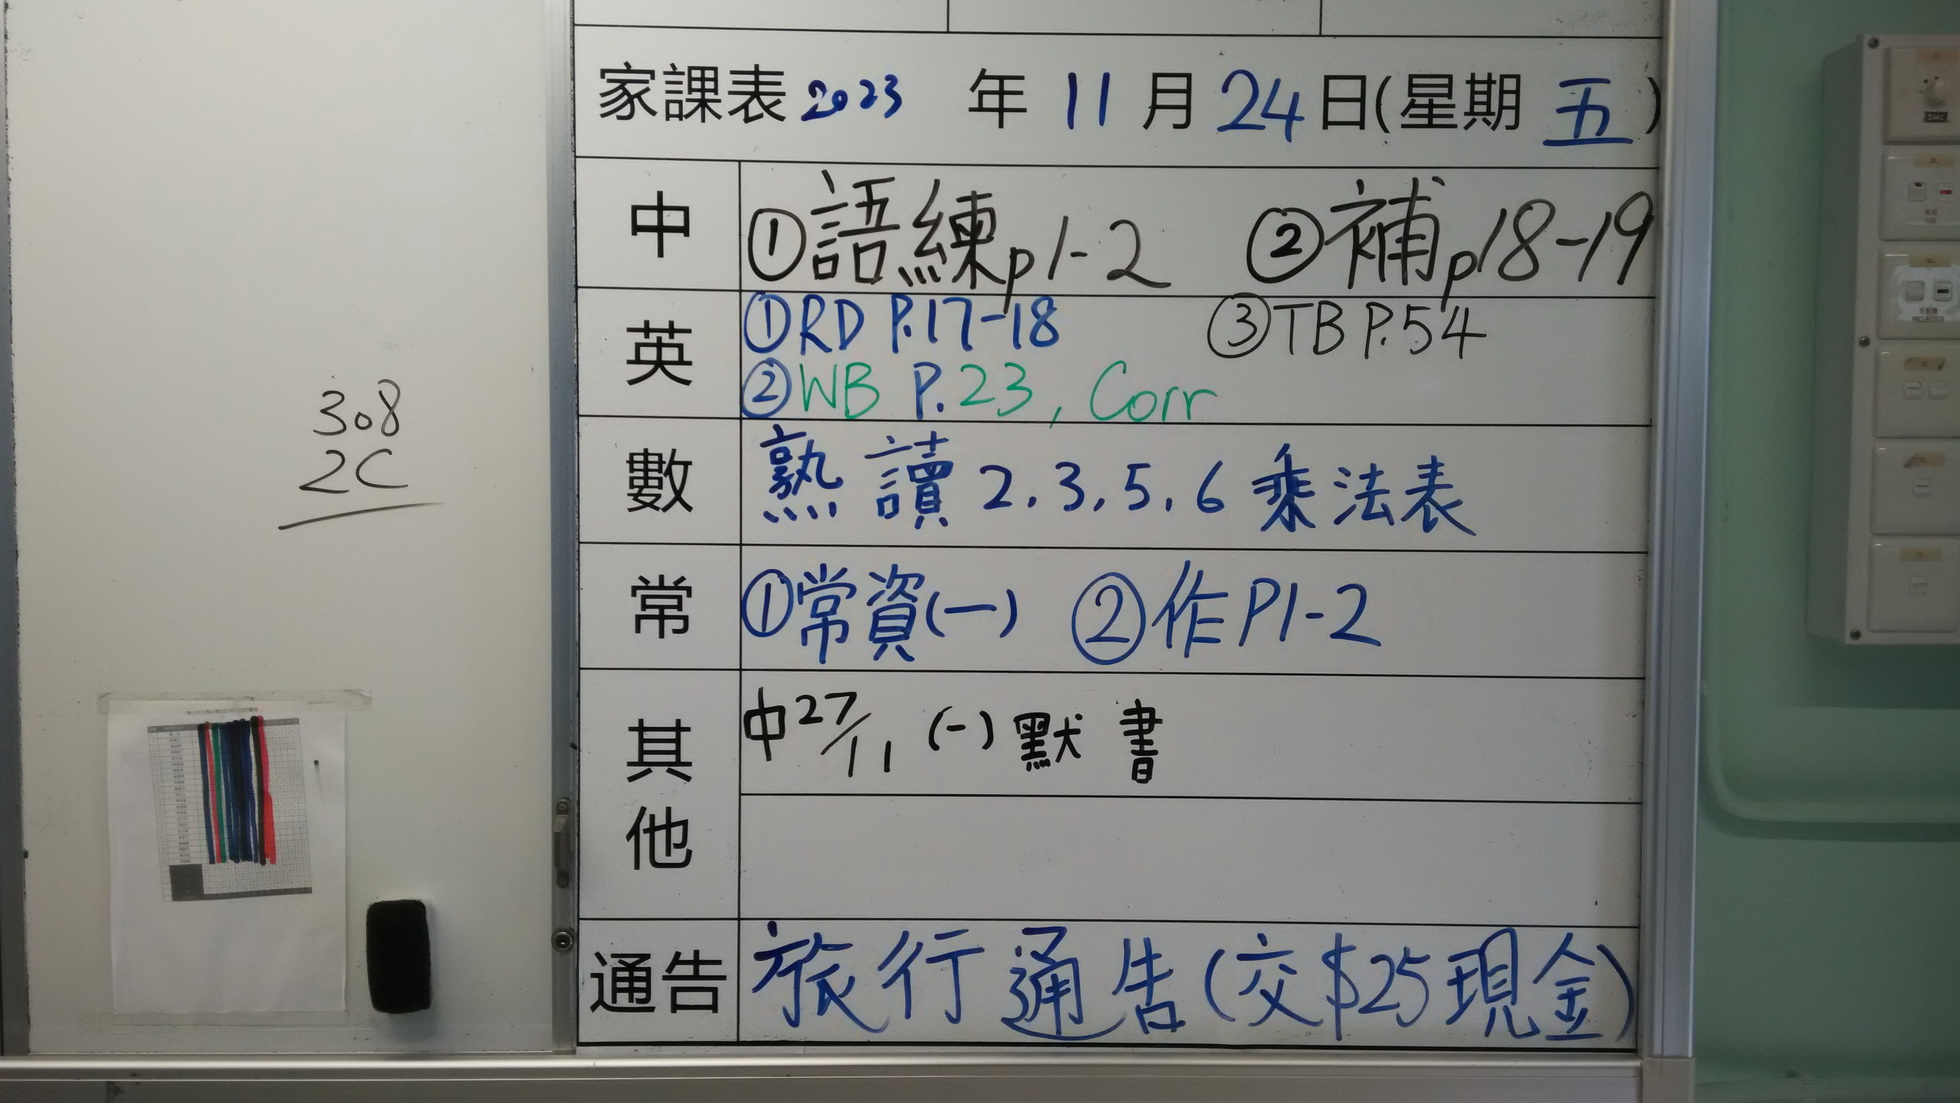 308
2C
家課表 2023 年 11 月 24 日(星期 五)
中 ①語練p1-2 ②補p18-19
英 ①RD P.17-18 ③TB P.54
②WB P.23, Corr
數 熟讀2.3.5.6乘法表
常 ①常資(一) ②作P1-2
其他 中27/11 (一) 默書
通告 旅行通告(交$25現金)